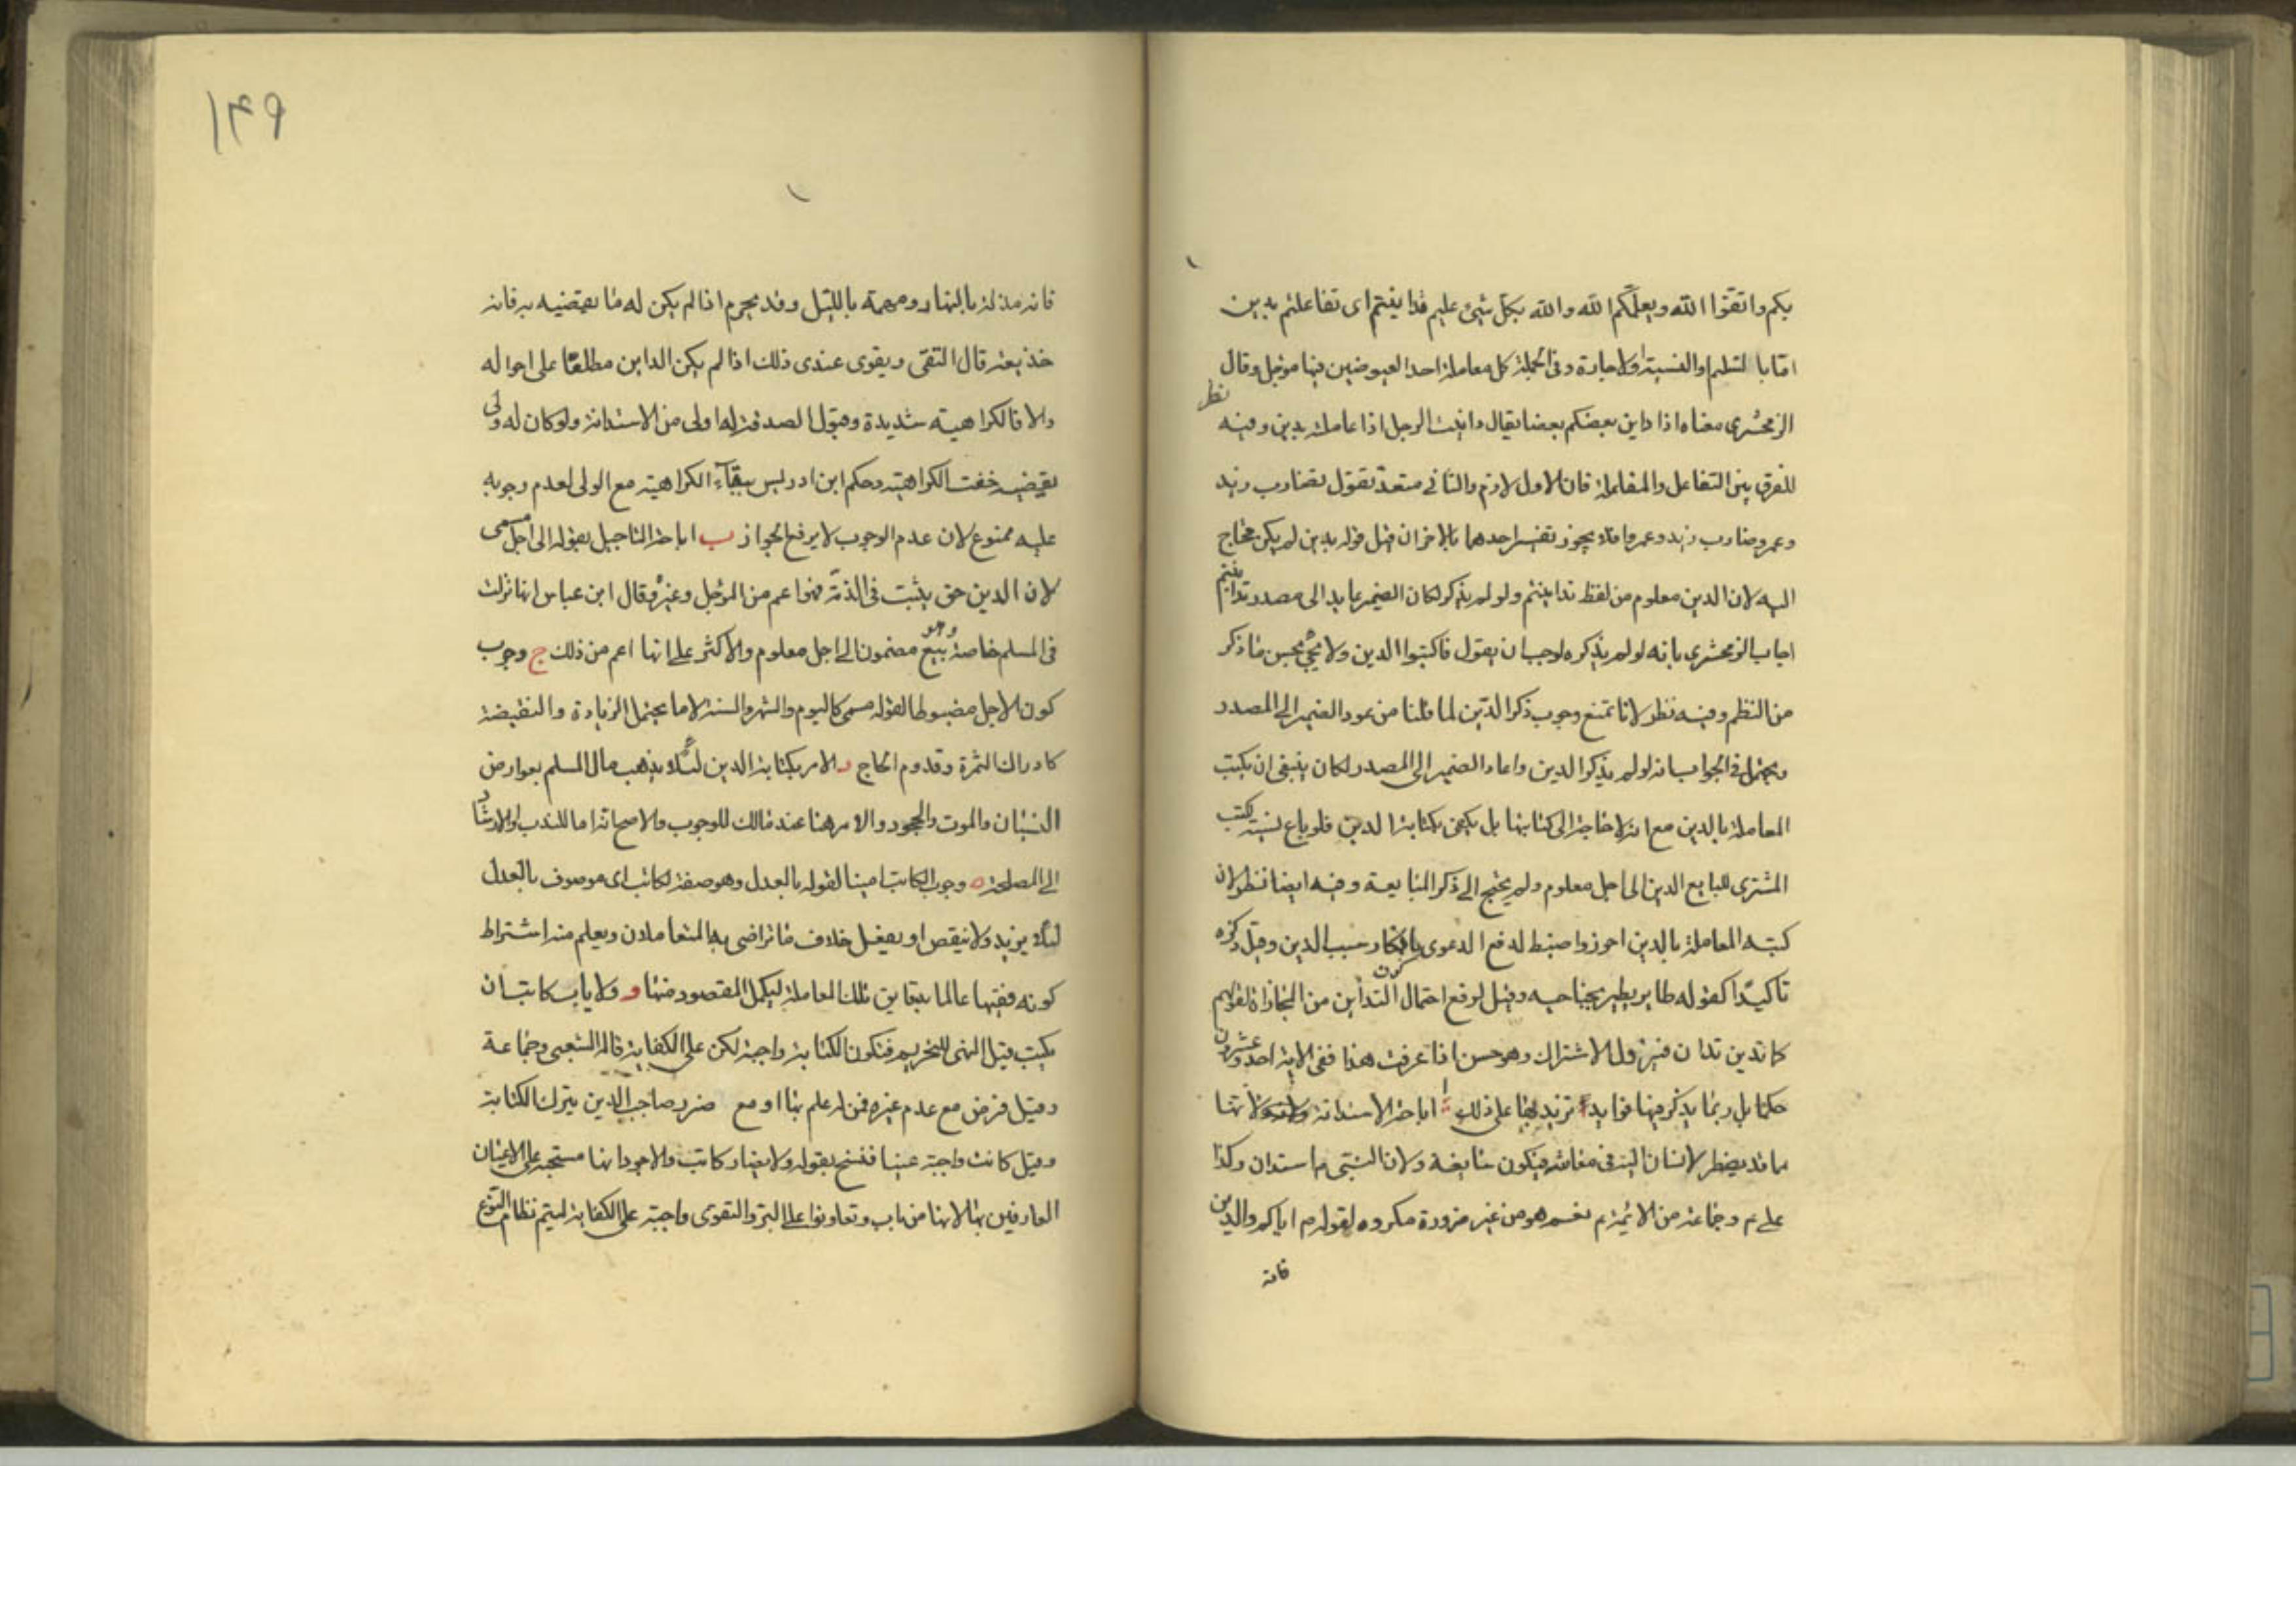 بكم واتقوا الله ويعلمكم الله والله بكل شيئ عليم فدا ينتم اى تفاعلتم بدين
اما بالسلم او النسية او الاجارة وفى الجملة كل معاملة احد العيوضين فيها موجل وقال
الزمخشرى معناه اذا داين بعضكم بعضا يقال داينت الرجل اذا عاملته بدين وفيه نظر
للفرق بين التفاعل والمفاعلة فان الاول لازم والثانى متعد تقول تضارب زيد
وعمرو وضارب زيد وعمروا فلا يجوز تفسير احدهما بالاخر ان قيل قوله بدين لم يكن محتاج
اليه لان الدين معلوم من لفظ تداينتم ولو لم يذكر لكان الضمير عايد الى مصدر تداينتم
اجاب الزمخشرى بانه لو لم يذكره لوجب ان يقول فاكتبوا الدين ولا يجئ بحسن ما ذكر
من النظم وفيه نظر لانا نمنع وجوب ذكر الدين لما قلنا من عود الضمير الى المصدر
ويحتمل فى الجواب انه لو لم يذكر الدين واعاد الضمير الى المصدر لكان ينبغى ان يكتب
المعاملة بالدين مع انه لا حاجة الى كتابتها بل يكفى بكتابة الدين فلو باع نسية كتب
المشترى للبايع الدين الى اجل معلوم ولم يحتج الى ذكر المبايعة وفيه ايضا نظر لان
كتبه المعاملة بالدين احوز واضبط لدفع الدعوى بانكار سبب الدين وقيل ذكره
تاكيدا كقوله طاير يطير بجناحيه وقيل لرفع احتمال كون التداين من المجازاة لقولهم
كما تدين تدان فيزول الاشتراك وهو حسن اذا عرفت هذا ففى الاية احد وعشرون
حكما بل ربما يذكر فيها فوايد تزيد على ذلك ا اباحة الاستدانة لانها
مما قد يضطر الانسان اليه فى معاشه فيكون سايغة ولان النبى ص استدان وكذا
على ع وجماعة من الائمة ع نعم هو من غير ضرورة مكروه لقوله ص اياكم والدين
فانه
١٤٩
فانه مذلة بالنهار ومهمة بالليل وقد يحرم اذا لم يكن له ما يقضيه به فانه
خديعة قال التقى ويقوى عندى ذلك اذا لم يكن الداين مطلعا على احواله
والا فالكراهية شديدة وقبول الصدقة له اولى من الاستدانة ولو كان له ولى
يقضيه خفت الكراهية وحكم ابن ادريس ببقاء الكراهية مع الولى لعدم وجوبه
عليه ممنوع لان عدم الوجوب لا يرفع الجواز ب اباحة التاجيل بقوله الى اجل مسمى
لان الدين حق يثبت فى الذمة فهو اعم من المؤجل وغيره وقال ابن عباس انها نزلت
فى السلم خاصة وهو بيع مضمون الى اجل معلوم والاكثر على انها اعم من ذلك ج وجوب
كون الاجل مضبوطا لقوله مسمى كاليوم والشهر والسنة لا ما يحتمل الزيادة والنقيصة
كادراك الثمرة وقدوم الحاج د الامر بكتابة الدين لئلا يذهب مال المسلم بعوارض
النسيان والموت والجحود والامر هنا عند مالك للوجوب والاصح انه اما للندب او الارشاد
الى المصلحة ه وجوب الكاتب امينا لقوله بالعدل وهو صفة لكاتب اى موصوف بالعدل
لئلا يزيد ولا ينقص او يفعل خلاف ما تراضى به المتعاملان ويعلم منه اشتراط
كونه فقيها عالما بدقايق تلك المعاملة ليكمل المقصود منها و ولا ياب كاتب ان
يكتب قيل النهى للتحريم فتكون الكتابة واجبة لكن على الكفاية قاله الشعبى وجماعة
وقيل فرض مع عدم غيره فمن له علم بها او مع ضرر صاحب الدين بترك الكتابة
وقيل كانت واجبة عينا فنسخ بقوله ولا يضار كاتب والاجود انها مستحبة على الاعيان
العارفين بها لانها من باب وتعاونوا على البر والتقوى واجبة على الكفاية ليتم نظام النوع